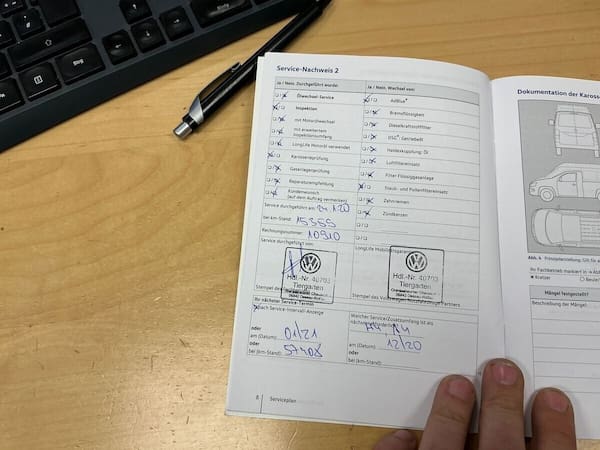 Service-Nachweis 2
Ja / Nein. Durchgeführt wurde:
Ja / Nein. Wechsel von:
Ölwechsel-Service
AdBlue®
Inspektion
Bremsflüssigkeit
mit Motorölwechsel
Dieselkraftstofffilter
mit erweitertem
Inspektionsumfang
DSG® Getriebeöl
LongLife Motoröl verwendet
Haldexkupplung: Öl
Karosserieprüfung
Luftfiltereinsatz
Gasanlagenprüfung
Filter Flüssiggasanlage
Reparaturempfehlung
Staub- und Pollenfiltereinsatz
Kundenwunsch
(auf dem Auftrag vermerken)
Zahnriemen
Zündkerzen
Service durchgeführt am
bei km-Stand: 15355
Rechnungsnummer: 10910
Service durchgeführt von:
LongLife Mobilitätsgarantie
Hdl.-Nr. 40703
Tiergarten
Hdl.-Nr. 40703
Tiergarten
Ihr nächster Service-Termin
nach Service-Intervall-Anzeige
Welcher Service/Zusatzumfang ist als
nächstes erforderlich
oder
am (Datum): 01/21
am (Datum): 12/20
oder
oder
bei (km-Stand): 57408
bei (km-Stand):
8 Serviceplan
Dokumentation der Karosse
Abb. 4
Ihr Fachbetrieb markiert in
Kratzer
Mängel festgestellt?
Beschreibung der Mängel: